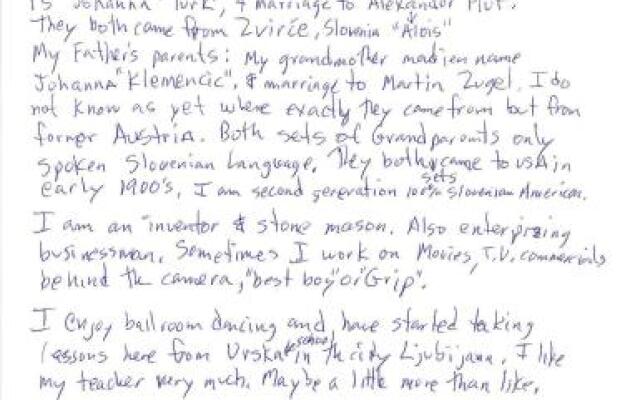 is "Johanna" Turk, & marriage to Alexander Plut.
They both came from Zvirče, Slovenia "Alois"
My Father's parents: My grandmother madien name
Johanna "Klemencic", & marriage to Martin Zugel. I do
not know as yet where exactly they came from but from
former Austria. Both sets of Grandparents only
spoken Slovenian Language. They both sets came to USA in
early 1900's, I am second generation 100% Slovenian American.
I am an inventor & stone mason. Also enterprizing
businessman. Sometimes I work on Movies, T.V. commercials
behind the camera, "best boy" or "Grip".
I enjoy ballroom dancing and have started taking
lessons here from Urska school in the city Ljubijana. I like
my teacher very much. Maybe a little more than like,